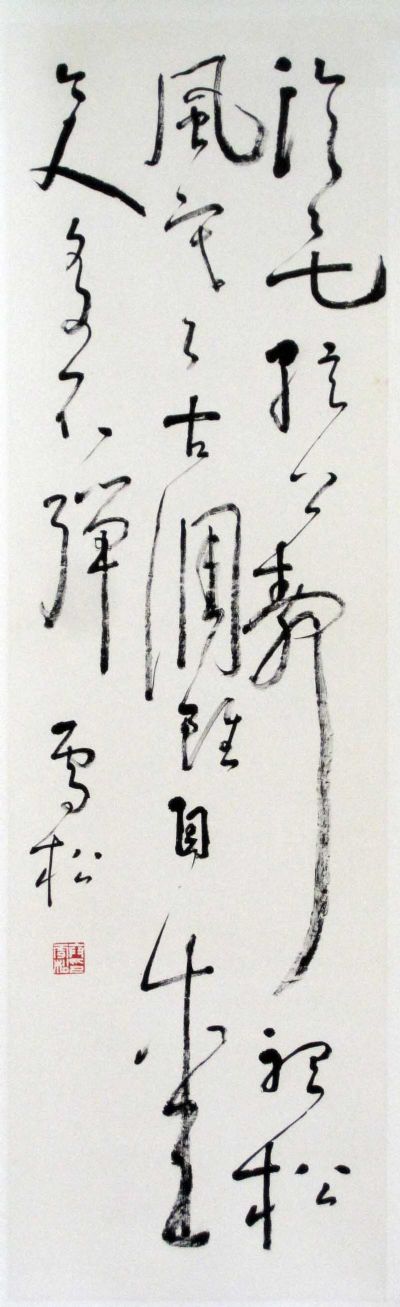 泠〻七弦上靜聽松
風寒古調雖自愛
今人多不彈
雪松